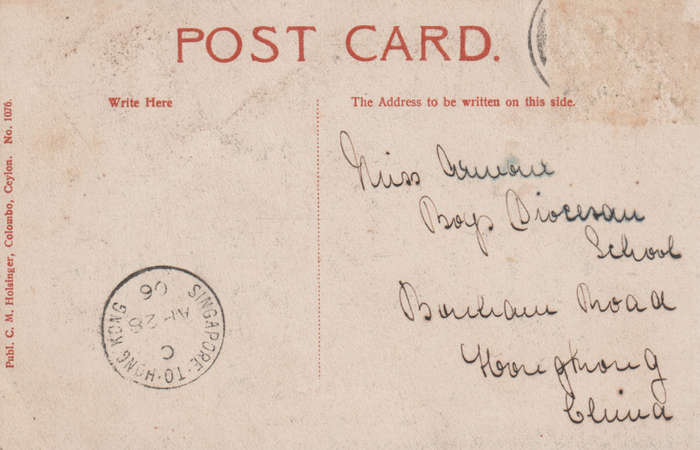 POST CARD.
Write Here
The Address to be written on this side.
Miss
Boys Diocesan
School
Bonham Road
Hongkong
China
SINGAPORE·TO·HONG KONG
C
AP 28
06
Publ. C. M. Holsinger, Colombo, Ceylon. No. 1076.